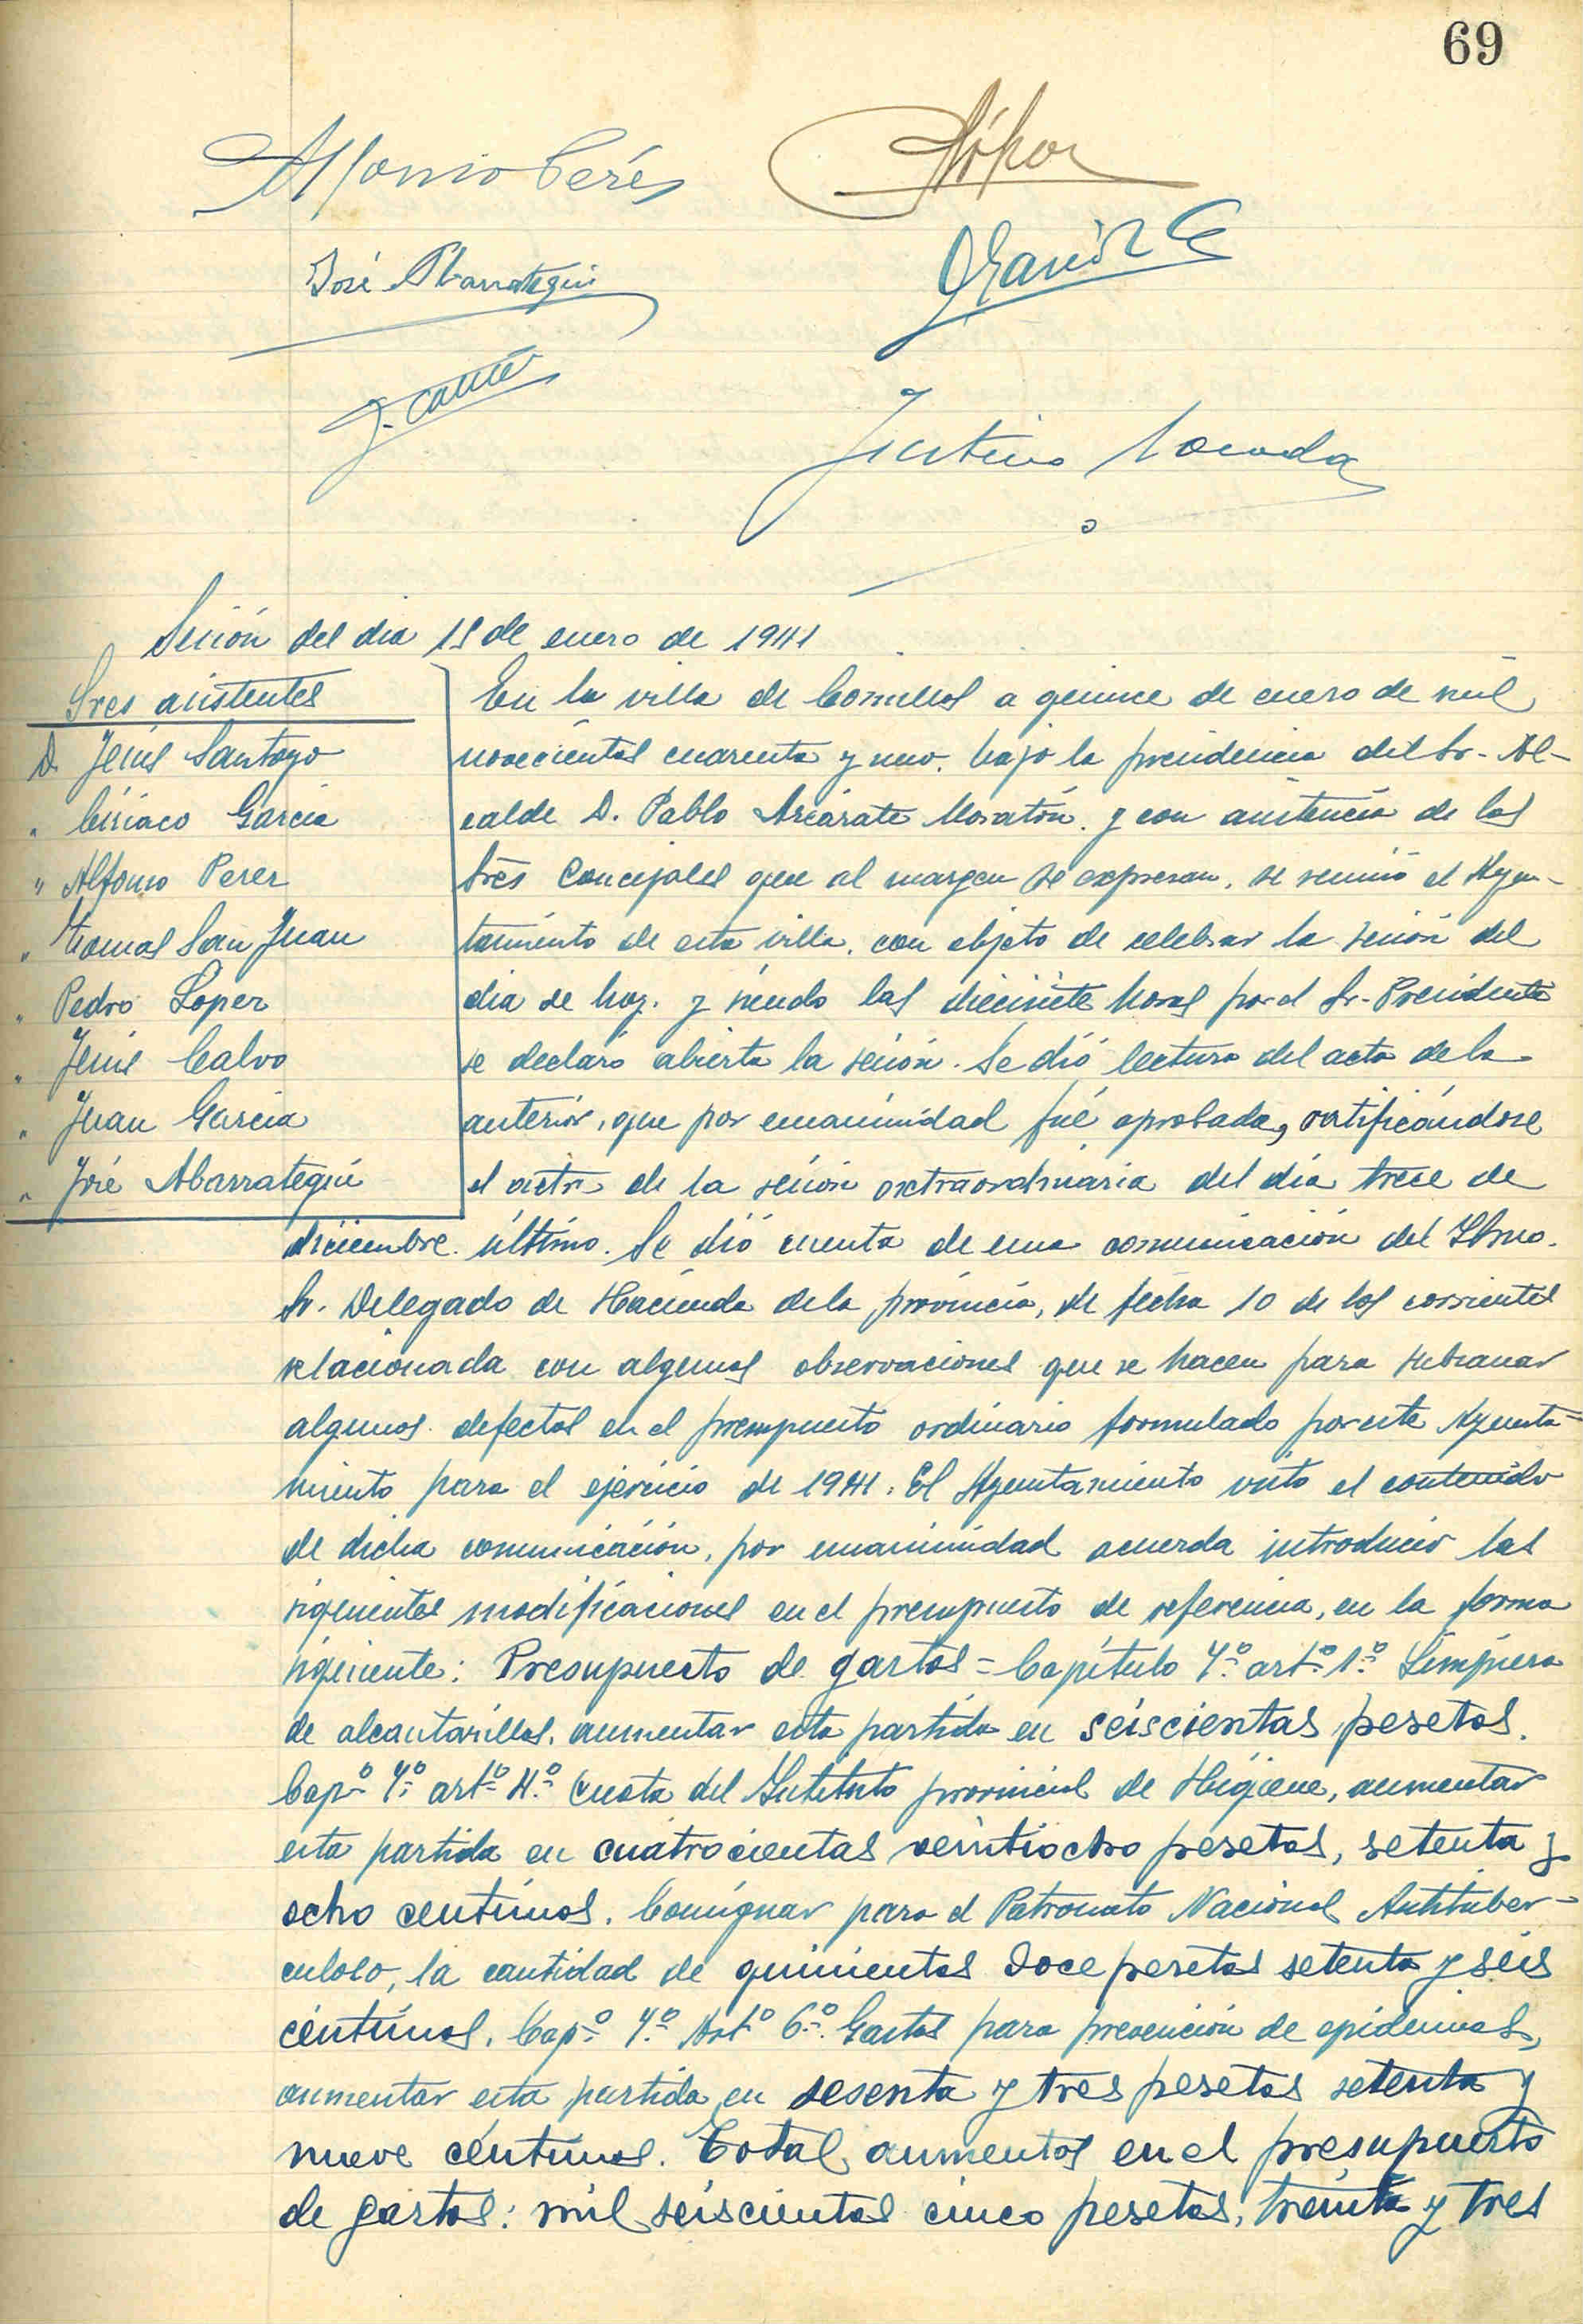 69
Alfonso Pérez
López
José Abarrategui
García
J. Calvo
Justino
Sesión del dia 15 de enero de 1941
Sres asistentes
D. Jesús Santoyo
" Ciriaco Garcia
" Alfonso Perez
" Tomas San Juan
" Pedro Lopez
" Jesús Calvo
" Juan Garcia
" José Abarrategui
En la villa de Cornellas a quince de enero de mil
novecientos cuarenta y uno, bajo la presidencia del Sr. Al-
calde D. Pablo Azcárate Moratón, y con asistencia de los
Sres Concejales que al margen se expresan, se reunió el Ayun-
tamiento de esta villa, con objeto de celebrar la sesión del
dia de hoy, y siendo las diecisiete horas por el Sr. Presidente
se declaró abierta la sesión. Se dió lectura del acta de la
anterior, que por unanimidad fué aprobada, ratificándose
el acta de la sesión extraordinaria del día trece de
diciembre último. Se dió cuenta de una comunicación del Iltmo.
Sr. Delegado de Hacienda de la provincia, de fecha 10 de los corrientes
relacionada con algunas observaciones que se hacen para subsanar
algunos defectos en el presupuesto ordinario formulado por este Ayunta-
miento para el ejercicio de 1941. El Ayuntamiento visto el contenido
de dicha comunicación, por unanimidad acuerda introducir las
siguientes modificaciones en el presupuesto de referencia, en la forma
siguiente: Presupuesto de gastos = Capítulo 7º artº 1º Limpieza
de alcantarillas, aumentar esta partida en seiscientas pesetas.
Capº 7º artº 4º Cuota del Instituto provincial de Higiene, aumentar
esta partida en cuatrocientas veintiocho pesetas, setenta y
ocho centimos. Consignar para el Patronato Nacional Antituber-
culoso, la cantidad de quinientas doce pesetas setenta y seis
céntimos. Capº 7º Artº 6º Gastos para prevención de epidemias,
aumentar esta partida en sesenta y tres pesetas setenta y
nueve céntimos. Total aumentos en el presupuesto
de gastos: mil seiscientas cinco pesetas, treinta y tres